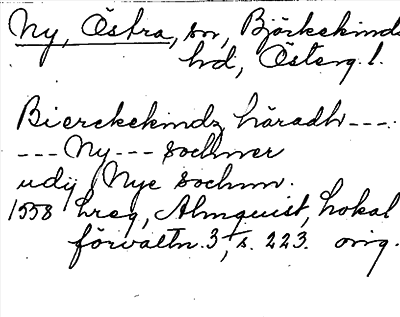 Ny, Östra, sn, Björkekinds
hd, Österg. l.
Bierckekindz häradh ---.
--- Ny --- sochner
udij Nye sochnn.
1558 hreg, Almquist, Lokal
förvaltn. 3, s. 223. orig.